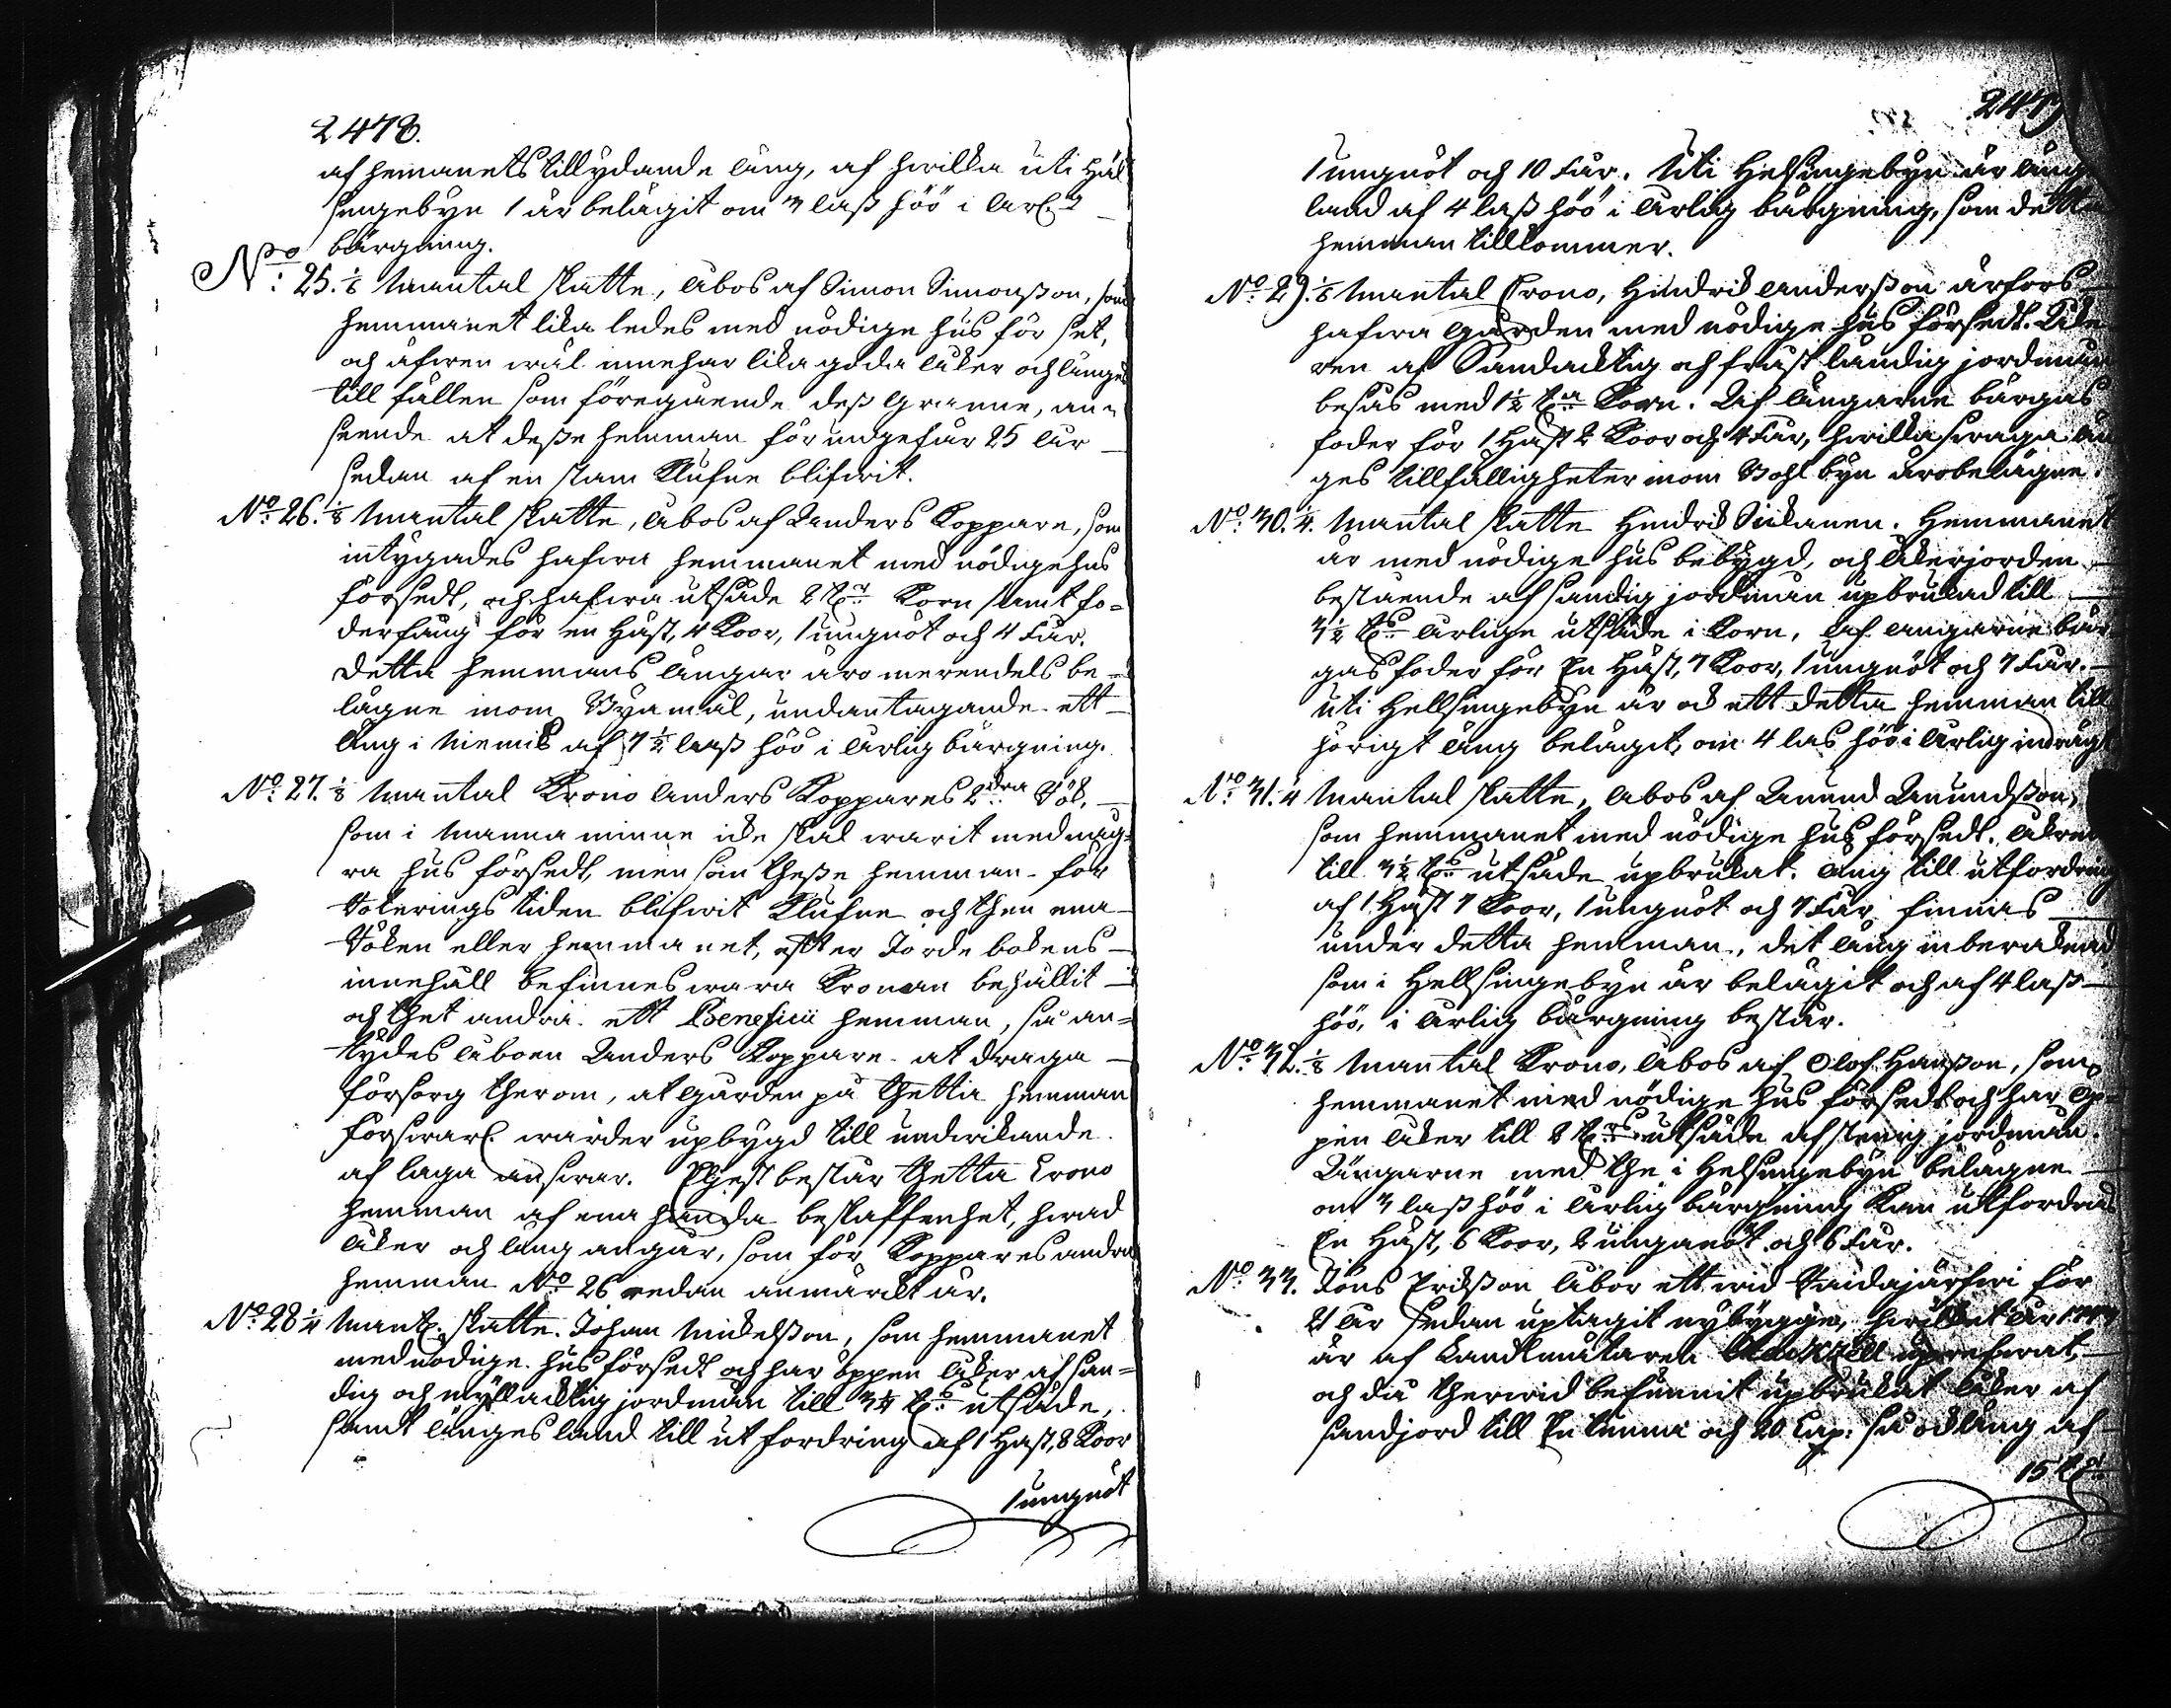 2478.
af hemanets tillydande äng, af hwilka uti Häl
singebyn 1 är belägit om 3 lass höö i årl:
bärgning.
No: 25. 1/8 Mantal skatte, åbos af Simon Simonsson, som
hemmanet lika ledes med nödige hus för set,
och äfwen wäl innehar lika goda åker och änges
till fällen som föregående dess Granne, an-
seende at desse hemman för ungefär 25 år
sedan af en stam klufne blifwit.
No: 26. 1/8 Mantal skatte, åbos af Anders Koppare, som
intygades hafwa hemmanet med nödige hus
försedt, och hafwa utsäde 2 Korn samt fo-
derfång för en Häst, 4 Koor, 1 ungnöt och 4 Får.
Detta hemmans ängar äro merendels be-
lägne inom Byamål, undantagande ett
äng i Niemis af 3 1/2 lass höö i årlig bärgning.
No: 27. 1/8 Mantal Krono Anders Koppares 2dra Rök,
som i manna minne icke skal warit med någ-
ra hus försedt, men som thesse hemman för
Roterings tiden blifwit klufne och then ena
Röken eller hemmanet, efter Jorde bokens
innehåll befinnes wara Kronan behållit
och thet andra ett Beneficii hemman, så an-
tydes åboen Anders Koppare at draga
försorg therom, at gården på thetta hemman
förswarl: warder upbygd till undwikande
af laga answar. Thest består thetta Crono
hemman af ena handa beskaffenhet, hwad
åker och äng angår, som för Koppares andra
hemman No 26 redan anmärkt är.
No: 28 1/4 Mant: skatte. Johan Mickelsson, som hemmanet
med nödige hus försedt och har öppen åker af san-
dig och myllacktig jordmån till 3 1/4 utsäde,
samt änges land till ut fordring af 1 Häst, 8 Koor
1 ungnöt
2479
1 ungnöt och 10 Får. Uti Helsingebyn är äng
land af 4 lass höö i årlig bärgning, som detta
hemman tillkommer.
No: 29. 1/8 Mantal Crono, Hindrik Andersson är fors
hafwa Gården med nödige hus försedt. Åke
ren af Sandacktig och frost ländig jordmån
besås med 1 1/2 Korn. Af ängarne bärgas
foder för 1 Häst 2 Koor och 4 Får, hwilka swaga än
ges tillfälligheter inom Bohl byn äro belägne.
No: 30. 1/4. Mantal skatte Hindrik Sukanen. Hemmanet
är med nödige hus bebygd, och åkerjorden
bestående af sandig jordmån upbrukad till
3 1/2 årlige utsäde i Korn, af ängarne bär-
gas foder för En Häst, 7 Koor, 1 ungnöt och 7 Får.
uti Hellsingebyn är ock ett detta hemman till
hörigt äng belägit, om 4 las höö i årlig indrägt
No: 31. 1/4 Mantal skatte, åbos af Anund Anundsson,
som hemmanet med nödige hus försedt. åkren
till 3 1/2 utsäde upbrukat. äng till utfordring
af 1 Häst 7 Koor, 1 ungnöt och 7 Får finnas
under detta hemman, det äng inberäknad
som i Hellsingebyn är belägit och af 4 lass
höö, i årlig bärgning består.
No: 32. 1/8 Mantal Krono, åbos af Olof Hansson, som
hemmanet med nödige hus försedt och har öp-
pen åker till 2 utsäde af stenig jordmån.
Ängarne med the i Helsingebyn belägne
om 3 lass höö i årlig bärgning kan utfordras
En Häst, 6 Koor, 2 unganöt och 6 Får.
No: 33. Jöns Ersson åbor ett wid järfwi för
21 år sedan uptagit nybygge, hwilket år
är af Landtmätaren uprefwat,
och då therwid befunnit upbrukat åker af
sandjord till En tunna och 20 Cap: så ock äng af
15